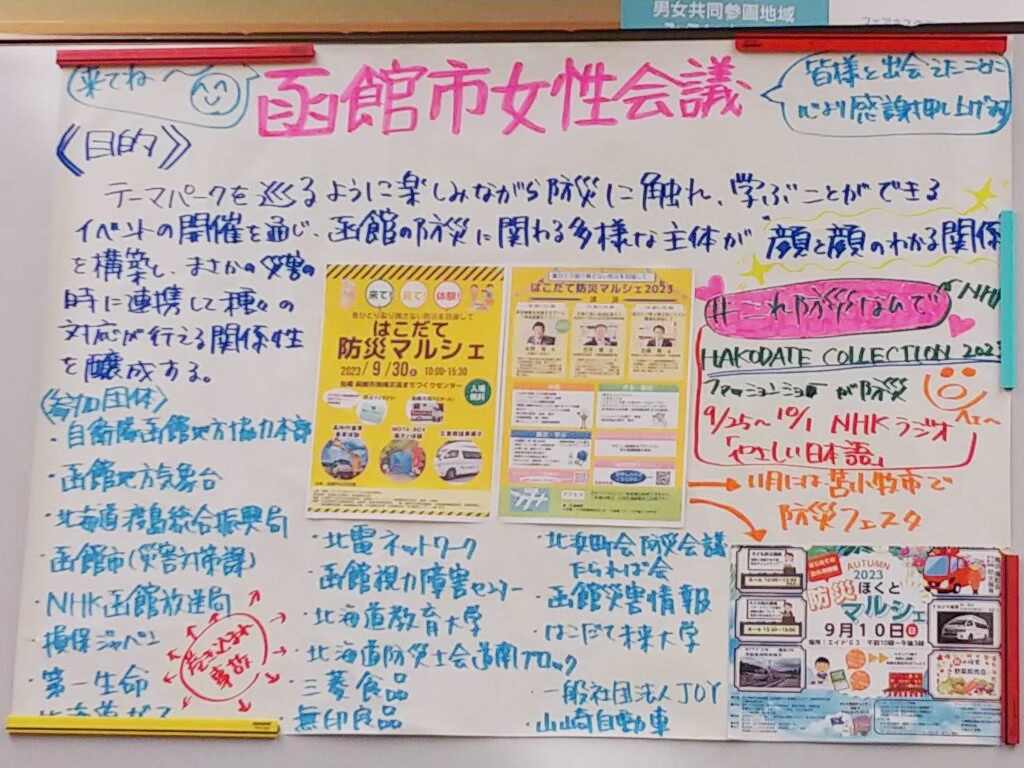 男女共同参画地域
来てね〜
函館市女性会議
皆様と出会えたことに
心より感謝申し上げます
《目的》
テーマパークを巡るように楽しみながら防災に触れ、学ぶことができる
イベントの開催を通じ、函館の防災に関わる多様な主体が 顔と顔のわかる関係
を構築し、まさかの災害の
時に連携して種々の
対応が行える関係性
を醸成する。
来て! 見て! 体験!
はこだて
防災マルシェ
2023/9/30 土 10:00-15:30
入場
無料
はこだて防災マルシェ2023
講演
アクセス
#これ防災なんで
NHK
HAKODATE COLLECTION 2023
ファッションショーが防災
9/25〜10/1 NHKラジオ
「やさしい日本語」
→11月には苫小牧市で
防災フェスタ
〈参加団体〉
・自衛隊函館地方協力本部
・函館地方気象台
・北海道渡島総合振興局
・函館市(災害対策課)
・NHK函館放送局
・損保ジャパン
・第一生命
北海道ガス
巻き込まれ
事故
・北電ネットワーク
・函館視力障害センター
・北海道教育大学
・北海道防災士会道南ブロック
・三菱食品
・無印良品
・北浜町会防災会議
たられば会
・函館災害情報
・はこだて未来大学
・一般社団法人JOY
・山崎自動車
AUTUMN
2023
防災 ほくと
マルシェ
9月10日 日